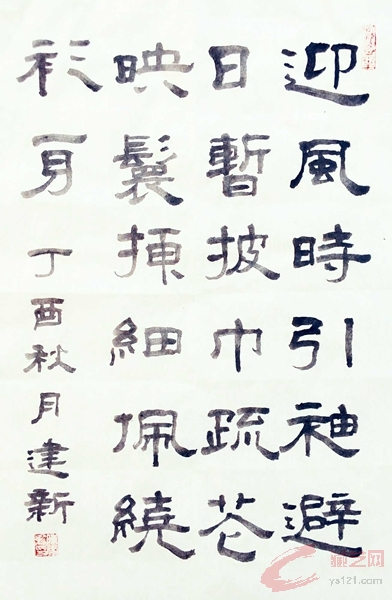 迎風時引袖避
日暫披巾疏花
映鬟插細佩繞
衫身
丁酉秋月建新
ya121.com